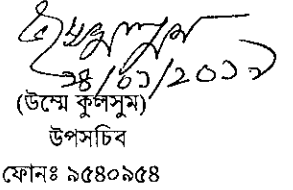 ২৪/০১/২০১১
(উম্মে কুলসুম)
উপসচিব
ফোনঃ ৯৫৪০৯৫৪